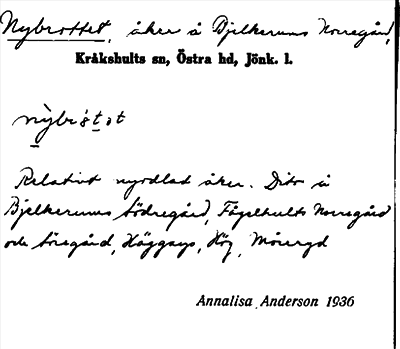 Nybrottet, åker å Bjelkerums Norregård,
Kråkshults sn, Östra hd, Jönk. l.
Relativt nyodlad åker. Dito å
Bjelkerums Södregård, Fågelhults Norregård
och Söregård, Häggsys, Hög,
Annalisa Anderson 1936